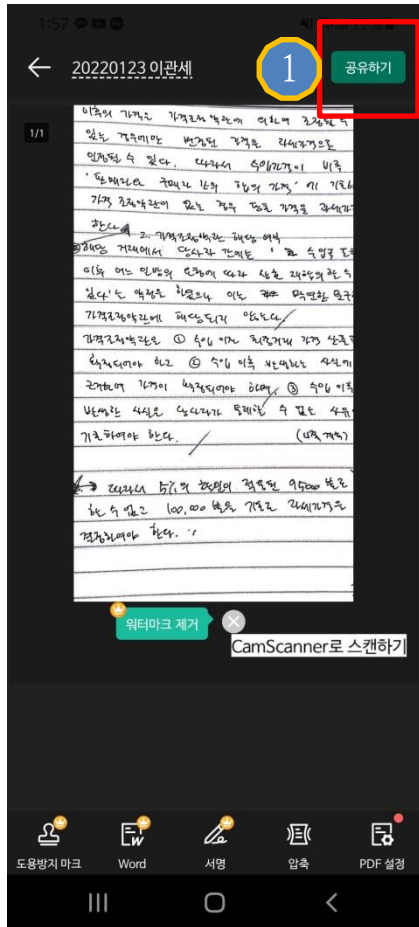 1:57
20220123 이관세
1
공유하기
1/1
이후의 가격은 가격조정약관에 의하여 조정될 수
있는 경우에만 변경된 가격은 과세가격으로
인정될 수 있다. 따라서 수입가격이 비록
가격 조정약관이 없는 경우
한다. 2. 가격조정약관 해당 여부
해당 거래에서 당사자 간에는 수입
이후 어느 일방의 요청에 따라 상호 재협의할 수
있다'는 약정은 하였으나 이는 막연한
가격조정약관에 해당되지 않는다.
가격조정약관은 ① 수입 이전 최종거래 가격
확정되어야 하고 ② 수입 이후 발생하는 사실에
근거하여 가격이 확정되어야 하며, ③ 수입 이후
발생한 사실은 당사자가 통제할 수 없는 사유
기초하여야 한다.
따라서 5%의 할인이 적용된 95000 불로
할 수 없고 100,000 불을 기초로 과세가격을
결정하여야 한다.
워터마크 제거
CamScanner로 스캔하기
도용방지 마크 Word 서명 압축 PDF 설정